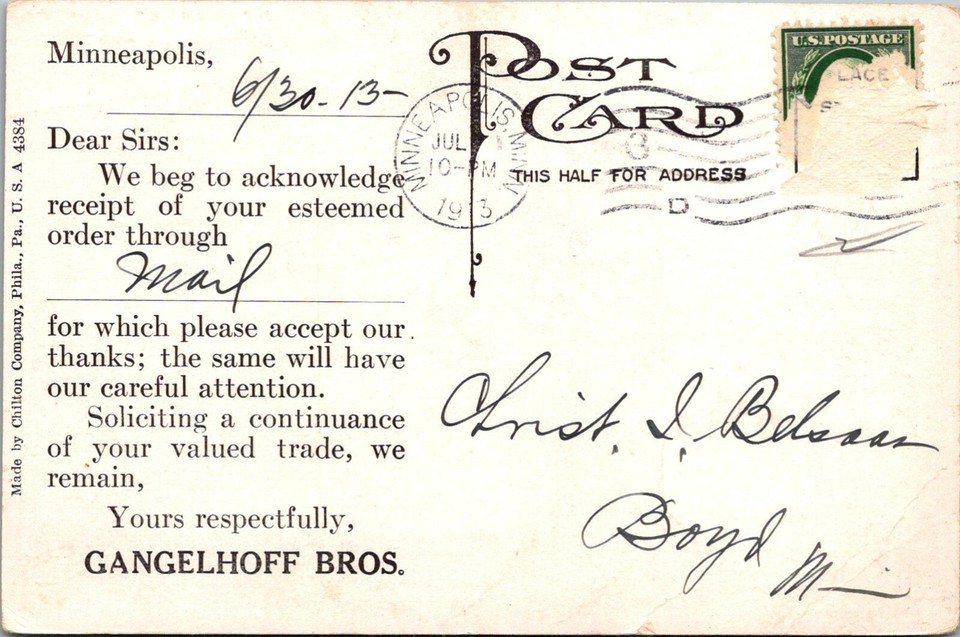 Minneapolis,
6/30-13-
Dear Sirs:
We beg to acknowledge
receipt of your esteemed
order through
Mail
for which please accept our
thanks; the same will have
our careful attention.
Soliciting a continuance
of your valued trade, we
remain,
Yours respectfully,
GANGELHOFF BROS.
Made by Chilton Company, Phila., Pa., U. S. A 4384
POST
CARD
THIS HALF FOR ADDRESS
MINNEAPOLIS, MINN.
JUL
10-PM
1913
3
D
U.S. POSTAGE
PLACE
S
Christ. I. Belsaas
Boyd M